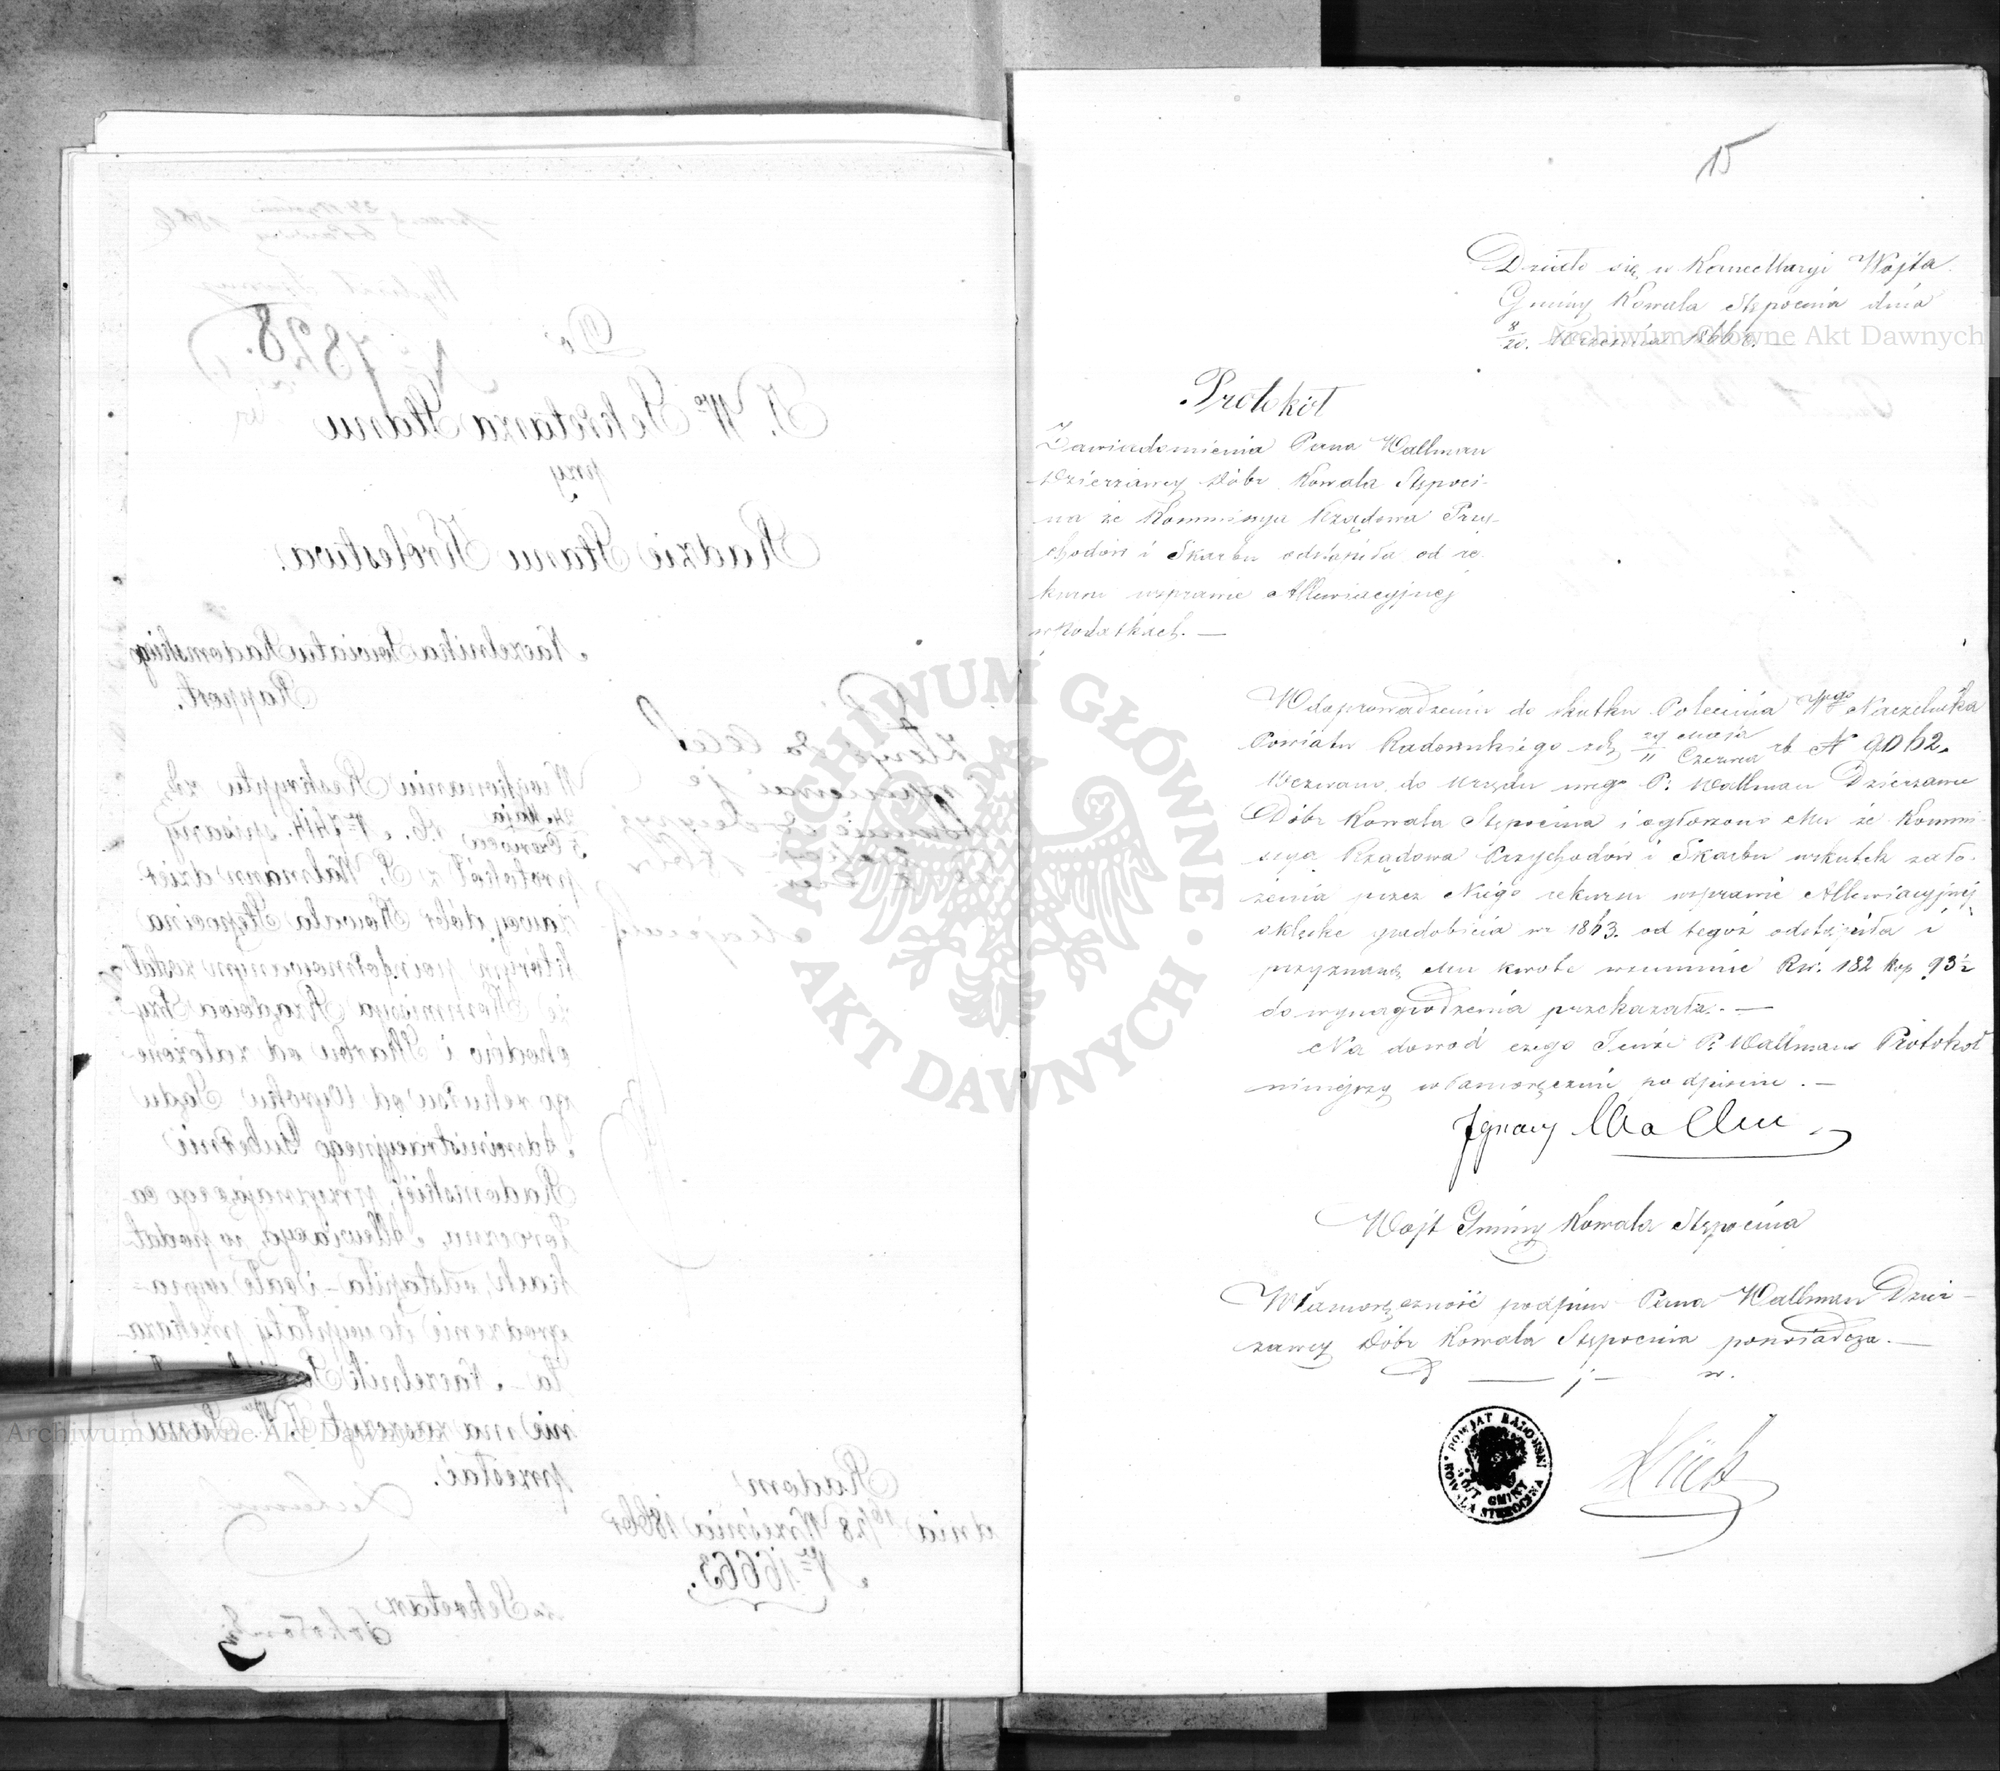 15
Działo się w Kancellaryi Wójta
Gminy Kowala Stępocina dnia
8/20. Września 1866 r. —
Protokół
Zawiadomienia Pana Wallman
Dzierżawcy Dóbr Kowala Stępoci-
na że Kommissya Rządowa Przy-
chodów i Skarbu odstąpiła od re-
kursu wsprawie Allewiacyjnej
w Podatkach. —
W doprowadzeniu do skutku Polecenia Wgo Naczelnika
Powiatu Radomskiego z dnia 29 Maja/11 Czerwca rb N 9062.
Wezwano do Urzędu mego P. Wallman Dzierzawcę
Dóbr Kowala Stępocina i ogłoszono Mu że Kommi-
ssya Rządowa Przychodów i Skarbu wskutek zało-
żenia przez Niego rekursu wsprawie Allewiacyjnej
oklęskę gradobicia w r. 1863. od tegoż odstąpiła i
przyznaną Mu kwotę wsummie Rs. 182 kop 93½
do wynagrodzenia przekazała. —
Na dowód czego Tenże P. Wallman Protokół
niniejszy własnoręcznie podpisuje. —
Ignacy Wallman
Wójt Gminy Kowala Stępocina
Własnoręczność podpisu Pana Wallman Dzier-
zawcy Dóbr Kowala Stępocina poświadcza. —
POWIAT RADOMSKI
WÓJT GMINY
KOWALA STEPOCINA
ARCHIWUM GŁÓWNE
AKT DAWNYCH
Archiwum Główne Akt Dawnych
Archiwum Główne Akt Dawnych
Do
J. Wo Sekretarza Stanu
przy
Radzie Stanu Królestwa.
Nº 7828.
Naczelnika Powiatu Radomskiego
Rapport.
W wykonaniu Reskryptu z d.
24 Maja/5 Czerwca r. b. Nº 7414. spisany
protokół z P. Walmann dzier-
żawcą dóbr Kowala Stępocina
którym poinformowanym został
że Kommissya Rządowa Przy-
chodów i Skarbu od założone-
go rekursu od Wyroku Sądu
Administracyjnego Gubernii
Radomskiej, przyznającego ca-
łoroczną Allewiacyą w podat-
kach, odstąpiła - i całe wyna-
grodzenie do wypłaty przekaza-
ła - Naczelnik
ma zaszczyt J. Wmu Panu
przesłać.
Radom
dnia 16/28 Września 1866 r
Nº 16663.
Sekretarz